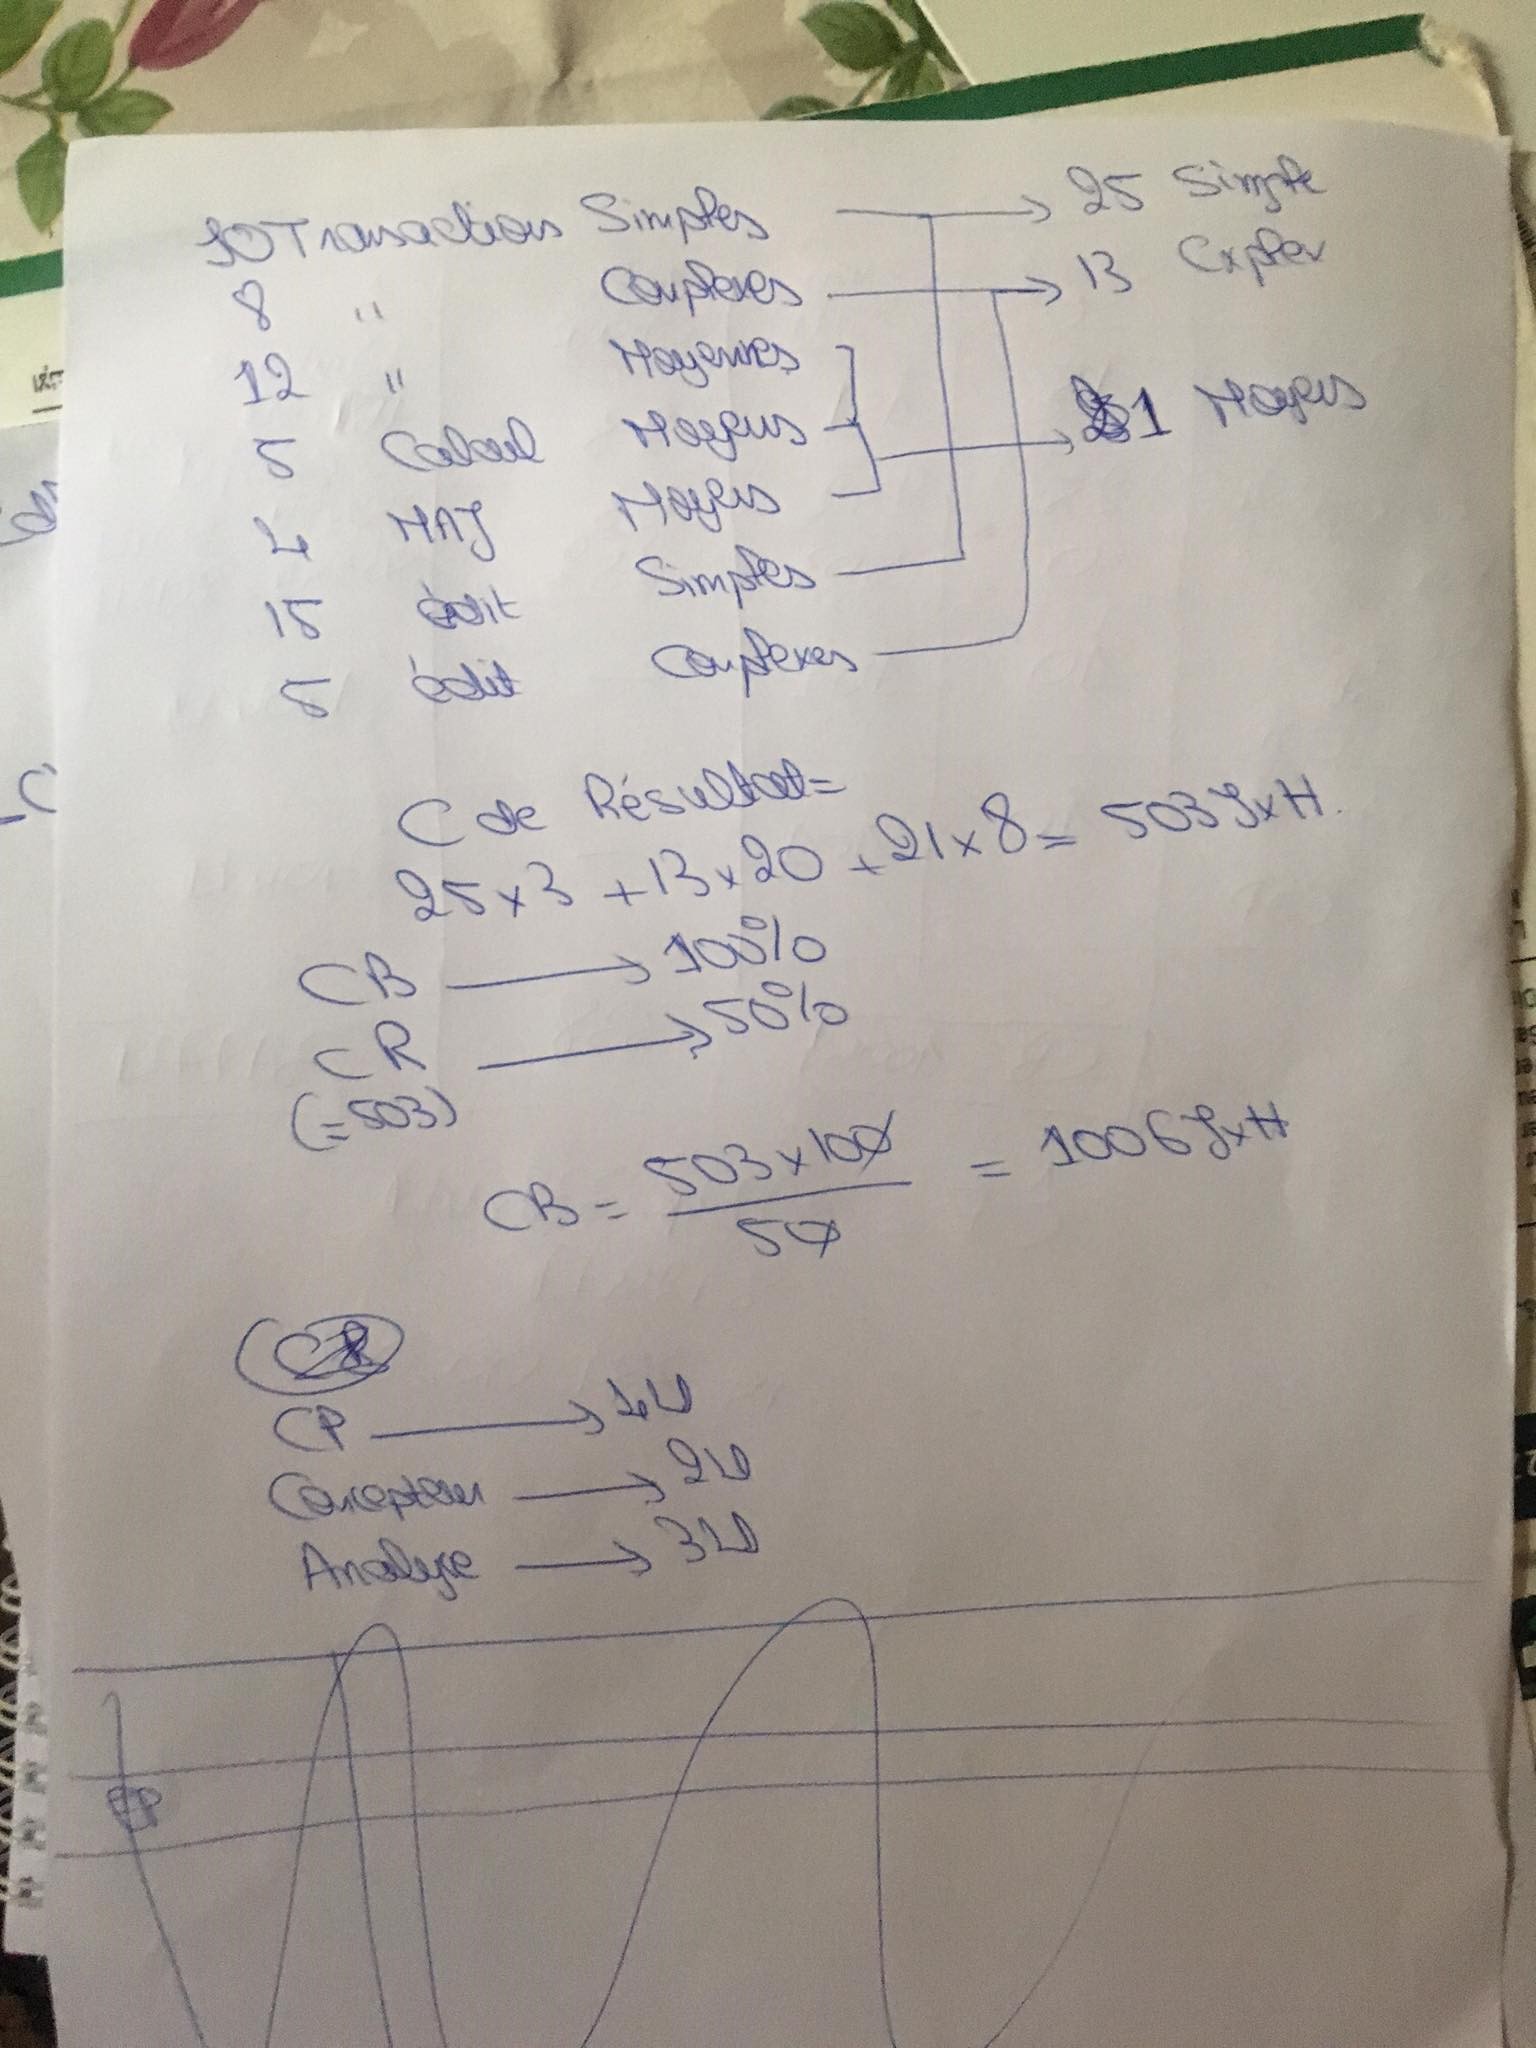 10 Transactions Simples → 25 Simple
8 " Complexes → 13 Cxplex
12 " Moyennes
5 Calcul Moyens → 21 Moyens
4 MAJ Moyens
15 édit Simples
5 édit Complexes
C de Résultat =
25 x 3 + 13 x 20 + 21 x 8 = 503 JxH.
CB → 100%
CR → 50%
(= 503)
CB = 503 x 100 / 50 = 1006 JxH
CP → 1U
Concepteur → 2U
Analyse → 3U